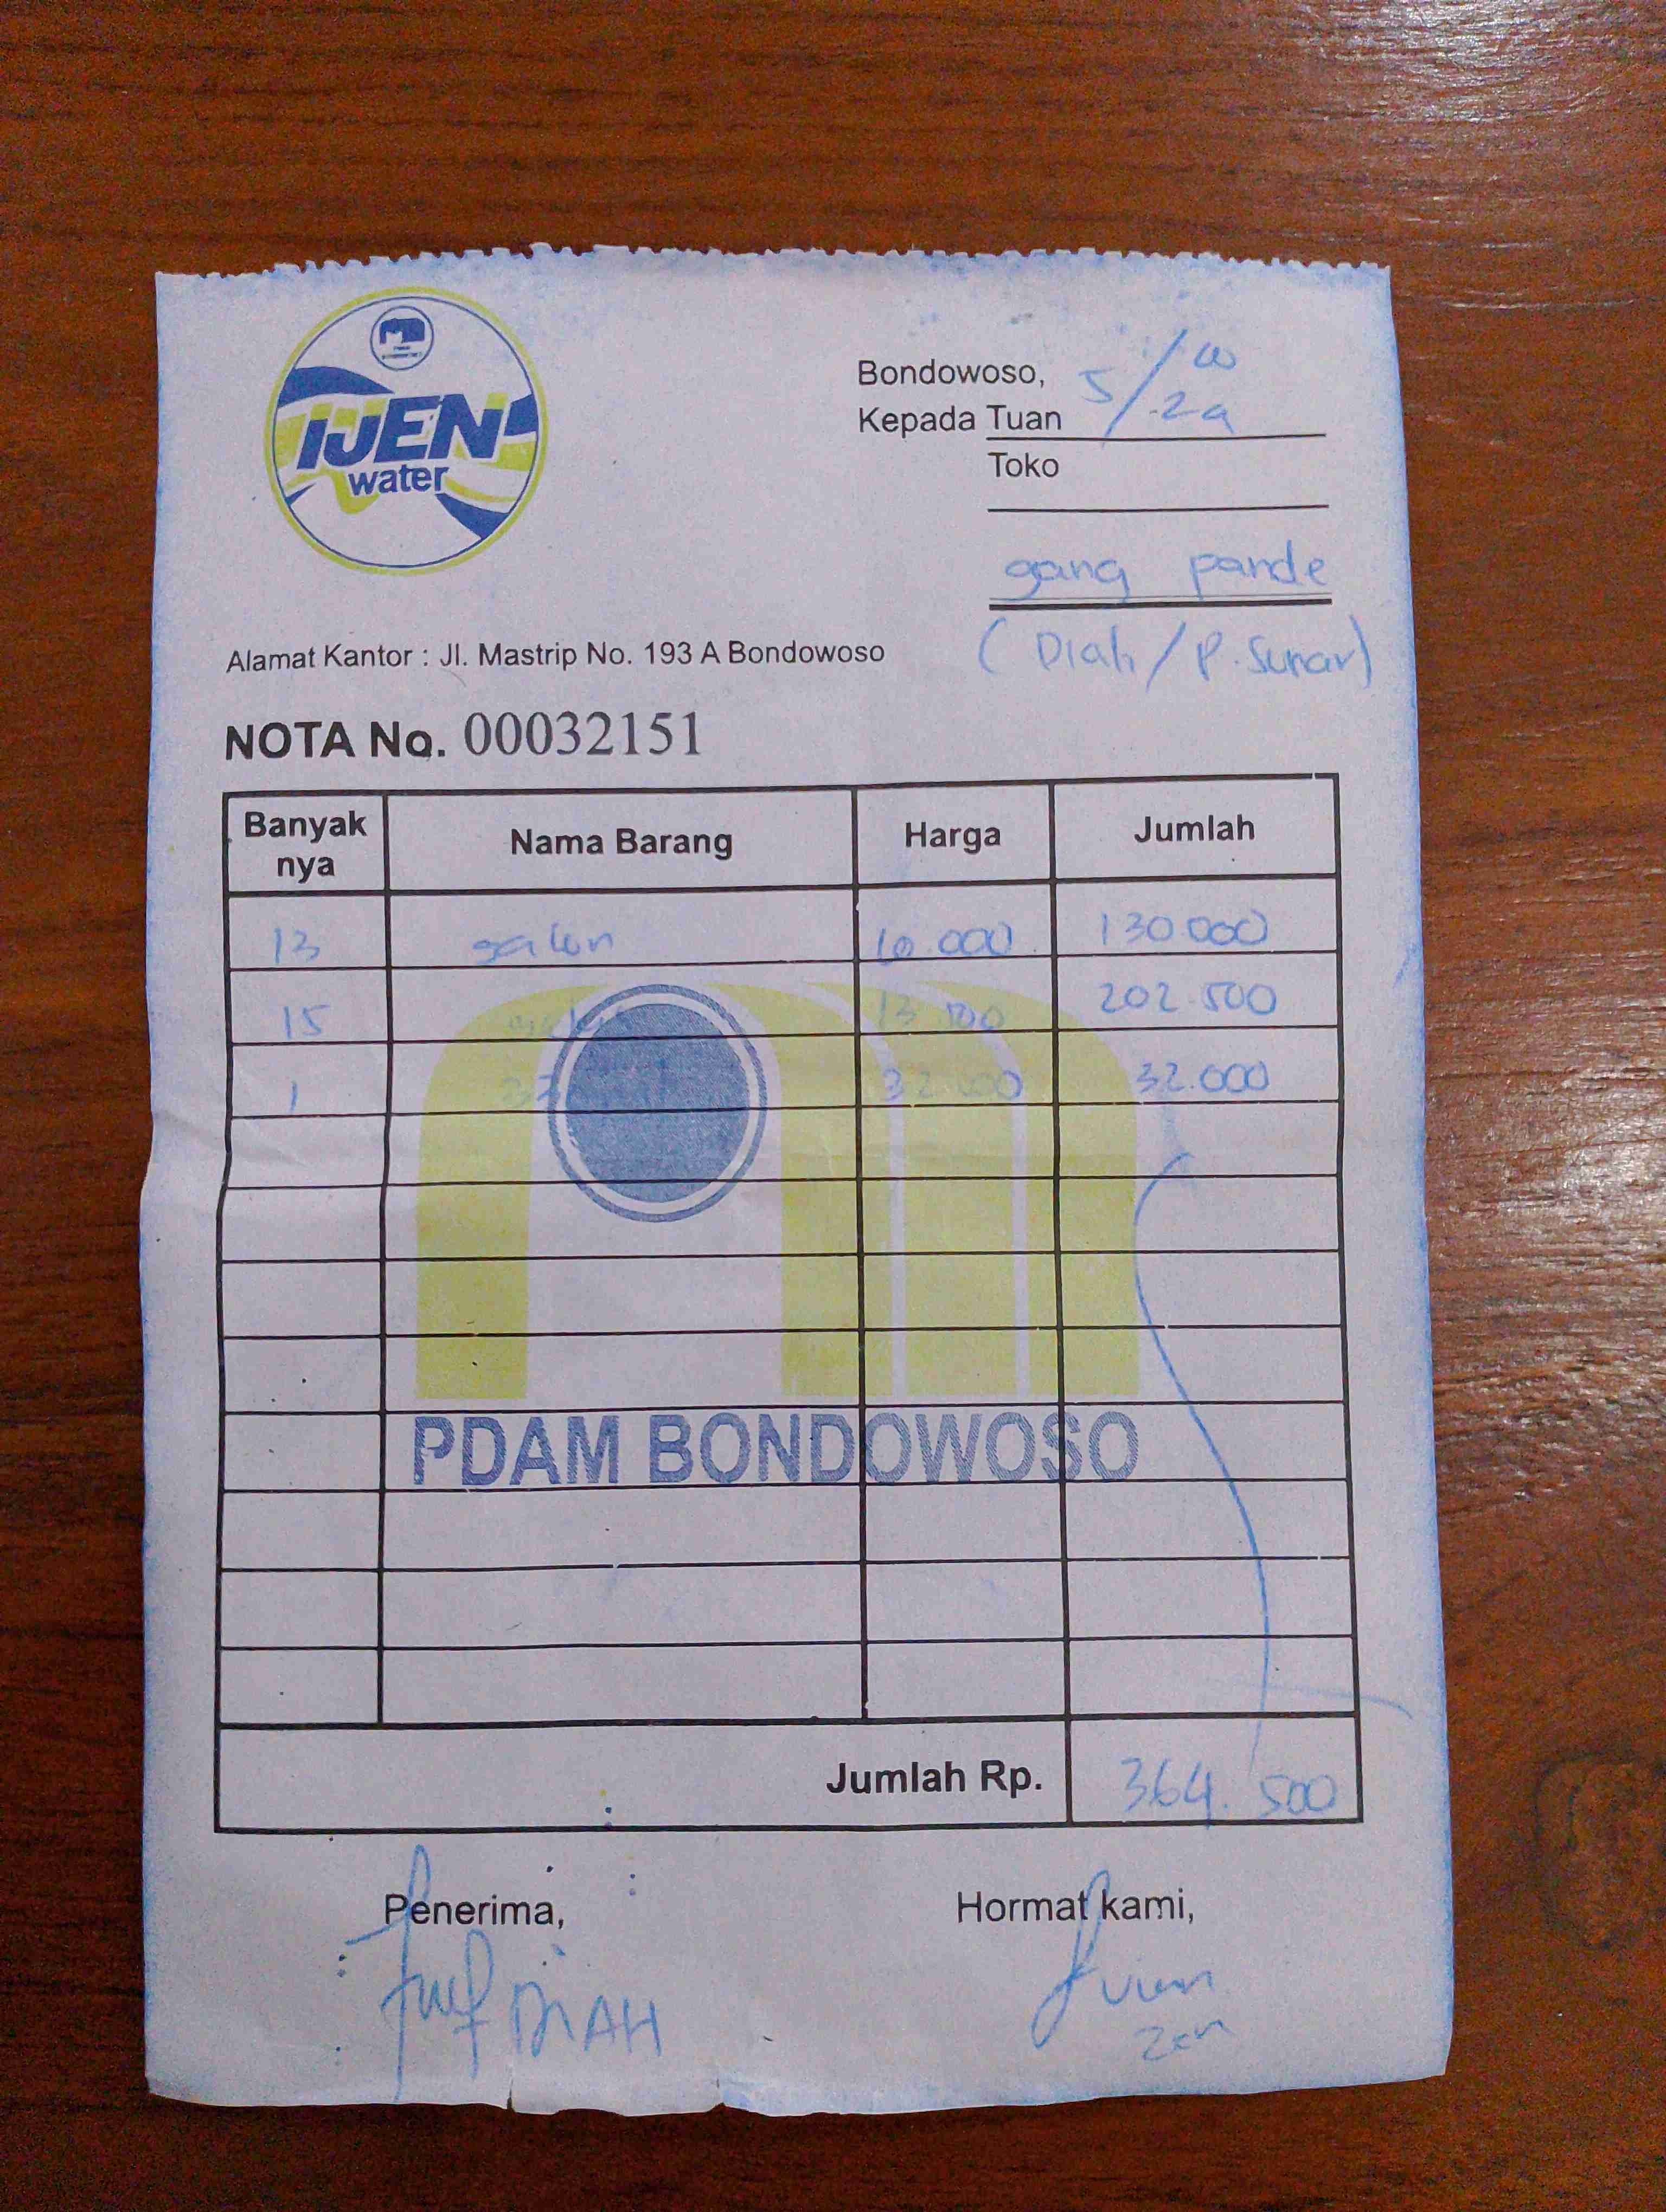 IJEN
water
Bondowoso, 5/10
Kepada Tuan
Toko
gang pande
(Diah / P. Sunar)
Alamat Kantor : Jl. Mastrip No. 193 A Bondowoso
NOTA No. 00032151
Banyak nya Nama Barang Harga Jumlah
13 galon 10.000 130.000
15 13.500 202.500
1 32.000 32.000
PDAM BONDOWOSO
Jumlah Rp. 364.500
Penerima, Hormat kami,
DIAH